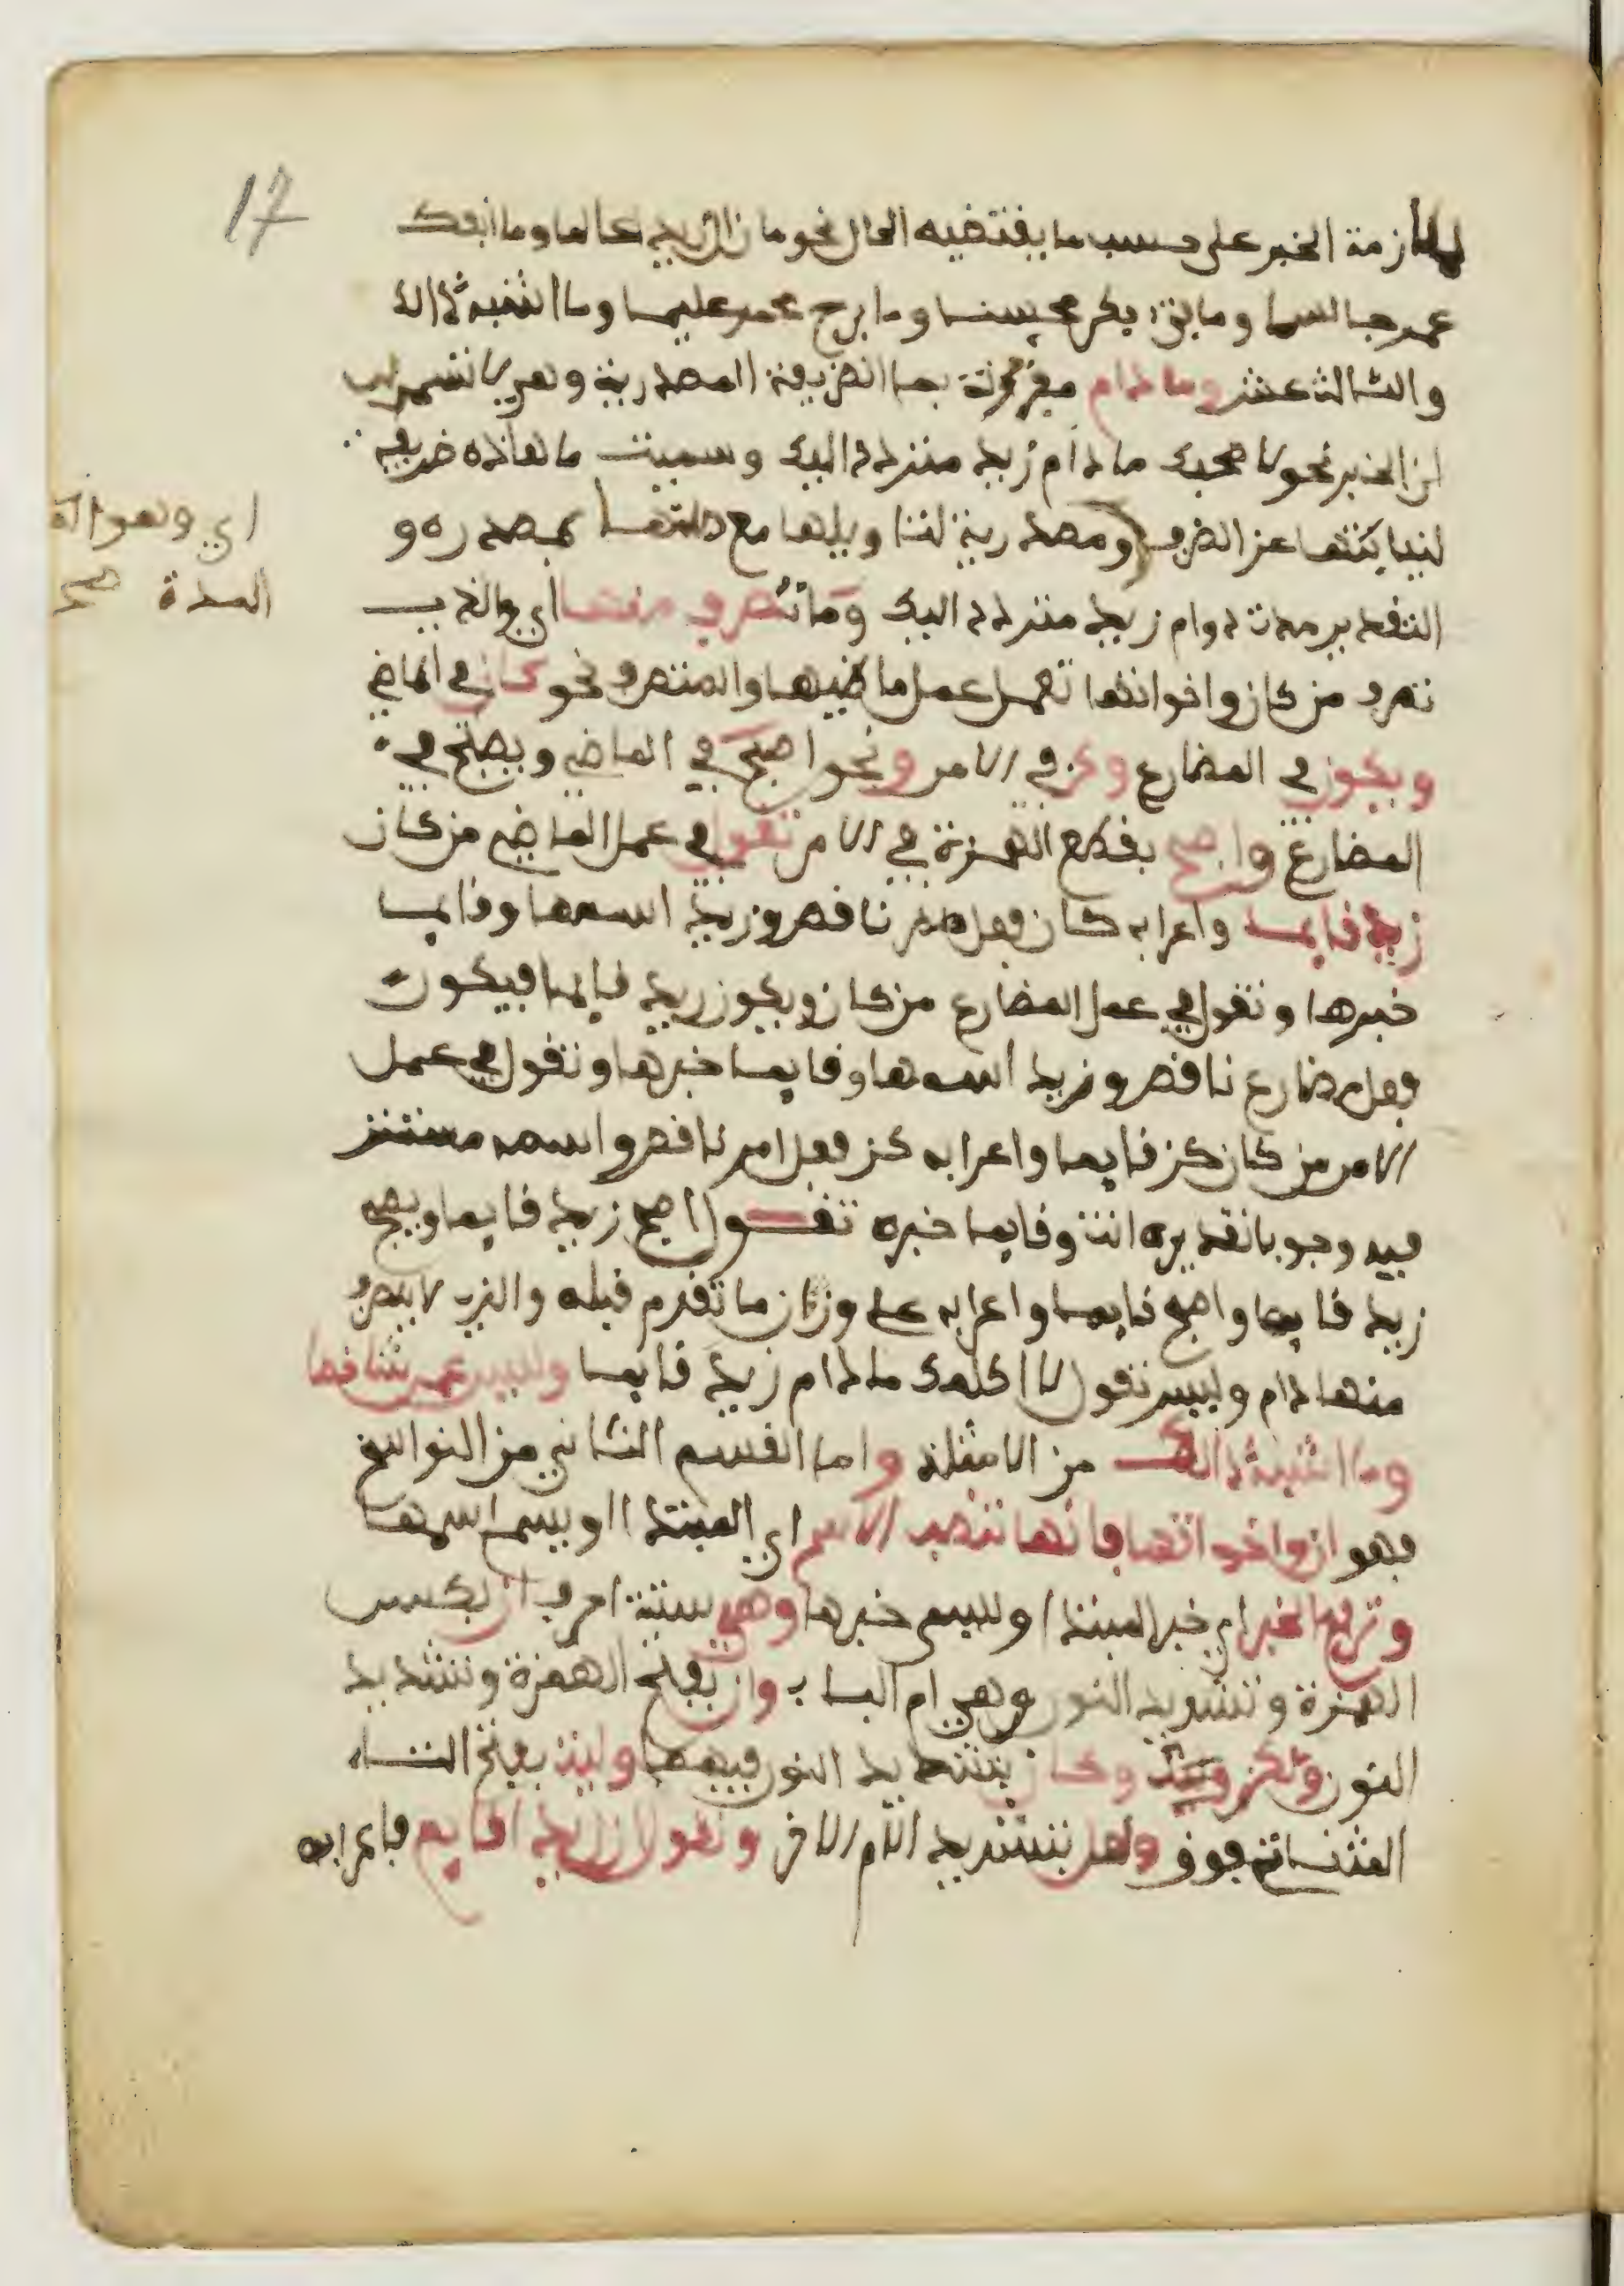 17
لملازمة الخبر على حسب ما يقتضيه الحال نحو ما زال زيد عالما وما انفك
عمر جالسا وما فتئ بكر محسنا وما برح محمد عليما وما اشبه ذالك
والثالث عشر وما دام مقرونة بما الظرفية المصدرية وهي لاستمرار
الخبر نحو لا اصحبك ما دام زيد مترددا اليك وسميت ما هاذه ظرفية
لنيابتها عن الظرف ومصدرية لتاويلها مع صلتها بمصدره و
اي وهو الة
المدة صح
التقدير مدة دوام زيد مترددا اليك وما تصرف منها اي والذي
تصرف من كان واخواتها تعمل عمل ماضيها والمتصرف نحو كان في الماضي
ويكون في المضارع وكن في الامر ونحو اصبح في الماضي ويصبح في
المضارع واصبح بقطع الهمزة في الامر تقول في عمل الماضي من كان
زيد قايما واعرابه كان فعل ماض ناقص وزيد اسمها وقايما
خبرها وتقول في عمل المضارع من كان ويكون زيد قايما فيكون
فعل مضارع ناقص وزيد اسمها وقايما خبرها وتقول في عمل
الامر من كان كن قايما واعرابه كن فعل امر ناقص واسمه مستتر
فيه وجوبا تقديره انت وقايما خبره تقول اصبح زيد قايما ويصبح
زيد قايما واصبح قايما واعرابه على وزان ما تقدم قبله والذي لا يتصرف
منها دام وليس تقول لا اكلمك ما دام زيد قايما وليس عمر شاخصا
وما اشبه ذالك من الامثلة واما القسم الثاني من النواسخ
فهو ان واخواتها فانها تنصب الاسم اي المبتدا او يسمى اسمها
وترفع الخبر اي خبر المبتدا ويسمى خبرها وهي ستة احرف ان بكسر
الهمزة وتشديد النون وهي ام الباب وان بفتح الهمزة وتشديد
النون ولكن وكان بتشديد النون فيهما وليت بفتح التاء
المثناة فوق ولعل بتشديد اللام الاخر وتقول ان زيدا قايم فاعرابه